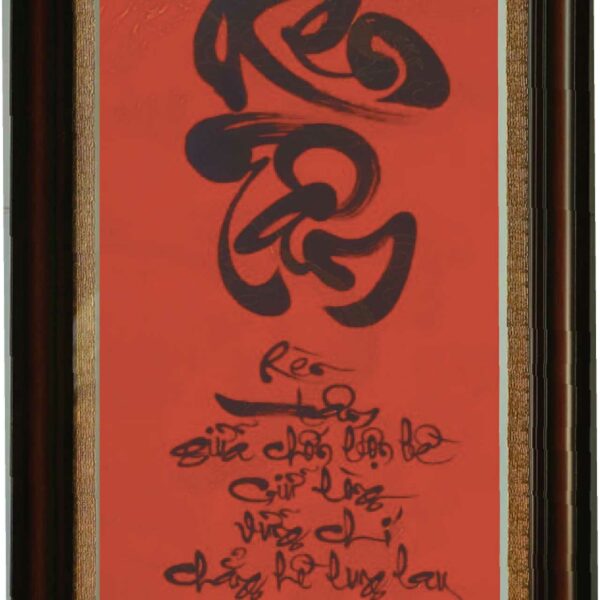 Rèn
Tâm
Rèn
tâm
giữa chốn bộn bề
Giữ lòng
vững chí
chẳng hề lung lay